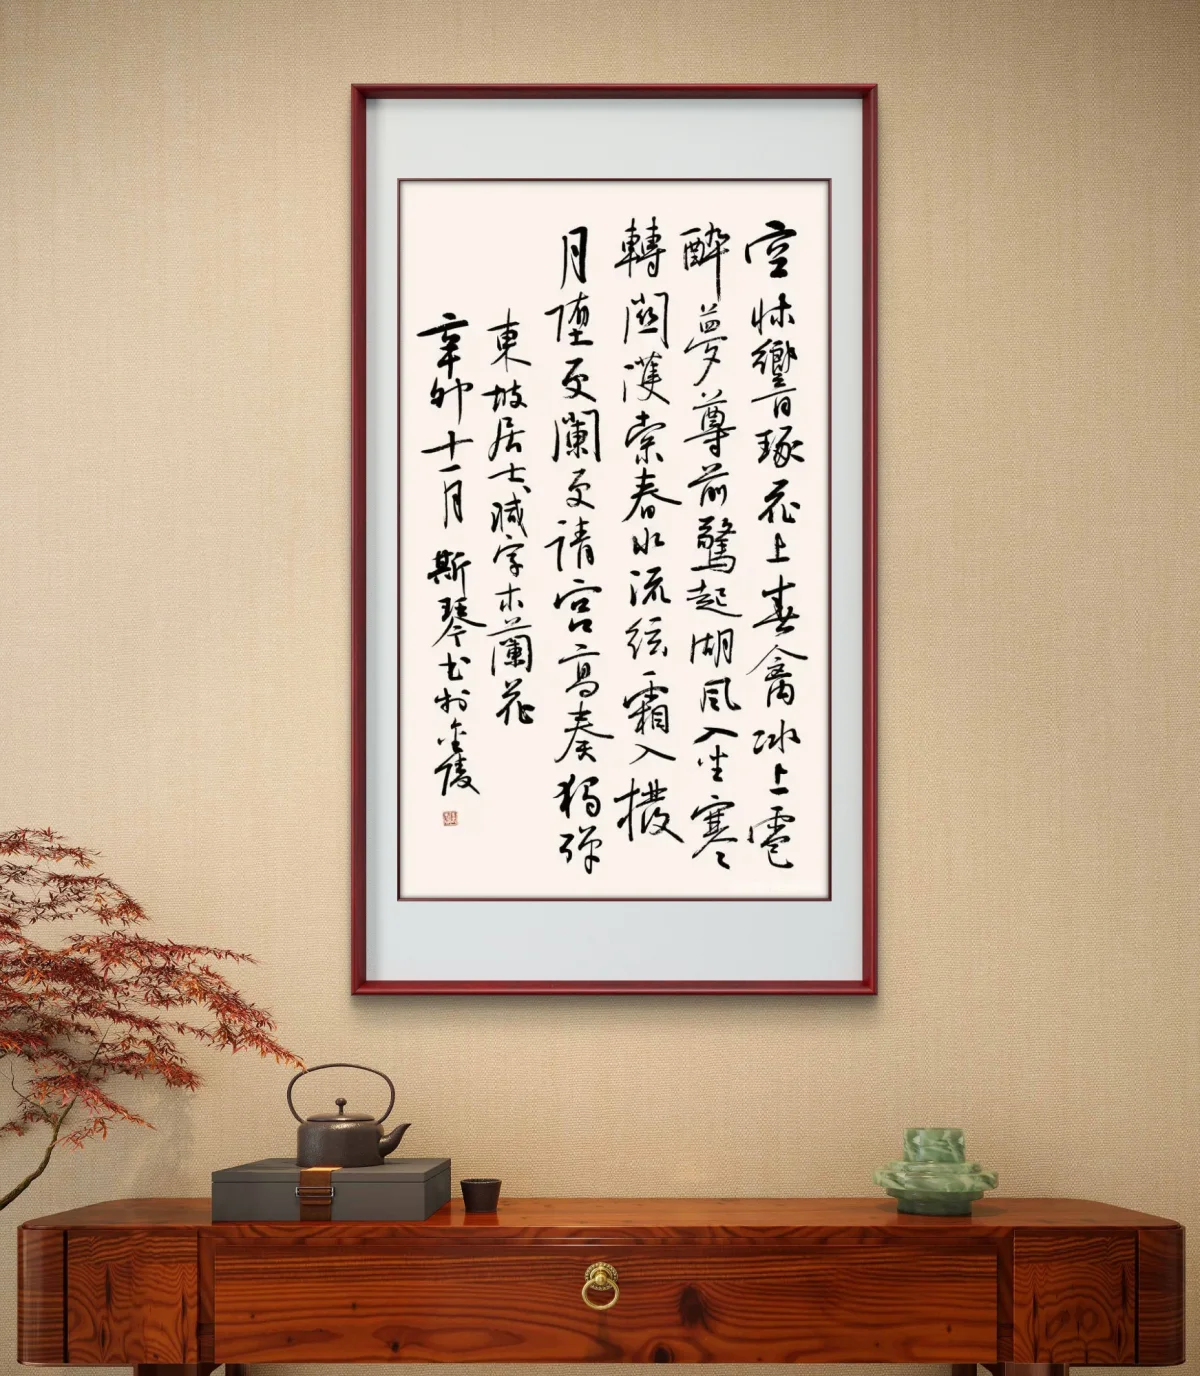 空牀響琢花上春禽冰上雹
醉夢尊前驚起湖風入坐寒
轉關濩索春水流絃霜入撥
月堕更闌更請宮高奏獨彈
東坡居士減字木蘭花
辛卯十一月 斯琴书於金陵